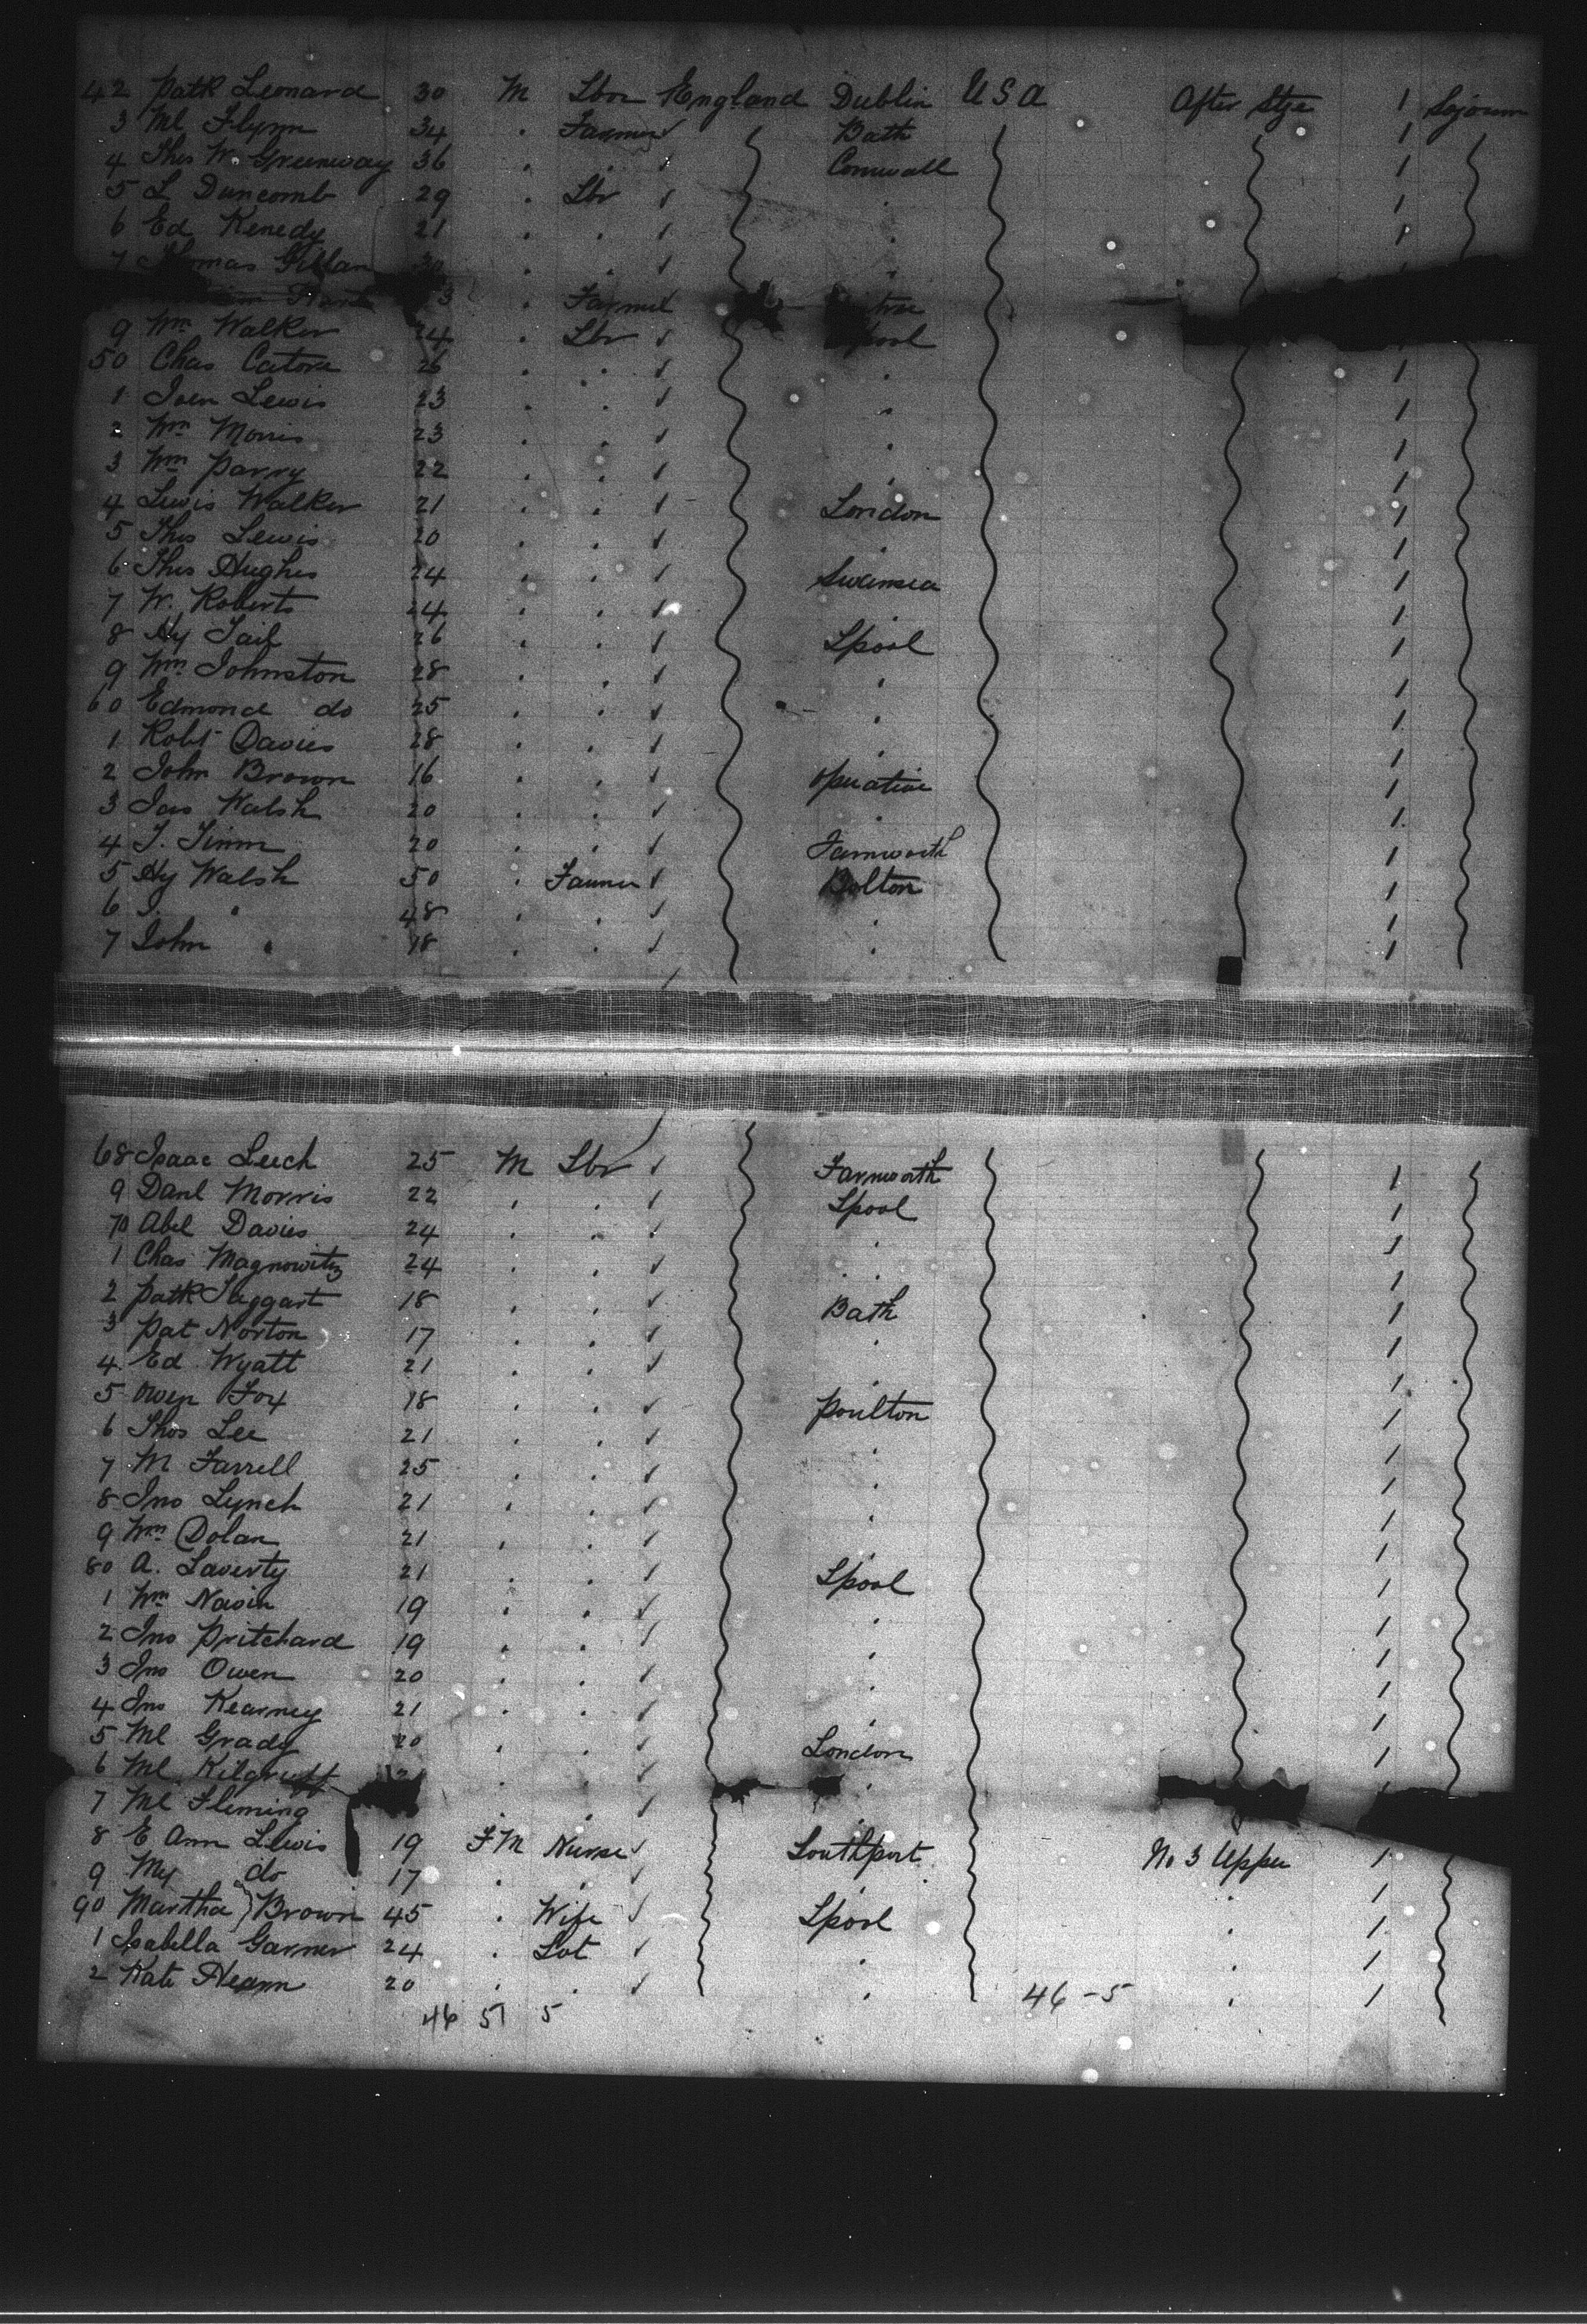 42 Patk Leonard 30 M Lbr England Dublin USA After Stge 1 Sojourn
3 Ml Flynn 34 . Farmer Bath 1
4 Thos W. Greenway 36 . . Cornwall 1
5 L Duncomb 29 . Lbr . 1
6 Ed Kenedy 21 . . . 1
7 Thomas Gillan 30 . . .
. Farmer
9 Wm Walker 24 . Lbr pool
50 Chas Catons 26 . . . 1
1 Joen Lewis 23 . . . 1
2 Wm Morris 23 . . . 1
3 Wm Parry 22 . . . 1
4 Lewis Walker 21 . . London 1
5 Thos Lewis 20 . . . 1
6 Thos Hughes 24 . . Swansea 1
7 W. Roberts 24 . . 1
8 Hy Tait 26 . . Lpool 1
9 Wm Johnston 28 . . . 1
60 Edmond do 25 . . . 1
1 Robt Davies 28 . . . 1
2 John Brown 16 . . operative 1
3 Jas Walsh 20 . . . 1
4 T. Timm 20 . . Farnworth 1
5 Hy Walsh 50 . Farmer Bolton 1
6 J. " 48 . . . 1
7 John " 18 . . . 1
68 Isaac Leech 25 M Lbr Farnworth 1
9 Danl Morris 22 . . Lpool 1
70 Abel Davies 24 . . . 1
1 Chas Magnowitz 24 . . . 1
2 Patk Taggart 18 . . Bath 1
3 Pat Norton 17 . . . 1
4 Ed Wyatt 21 . . . 1
5 Owen Fox 18 . . Poulton 1
6 Thos Lee 21 . . . 1
7 M Farrell 25 . . . 1
8 Jno Lynch 21 . . . 1
9 Wm Dolan 21 . . . 1
80 A. Laverty 21 . . Lpool 1
1 Wm Navin 19 . . . 1
2 Jno Pritchard 19 . . . 1
3 Jno Owen 20 . . . 1
4 Jno Kearney 21 . . . 1
5 Ml Grady 20 . . London 1
6 Ml Kilgruff . . .
7 Ml Fleming . .
8 E Ann Lewis 19 FM Nurse Southport No 3 Upper 1
9 My do 17 . . . . 1
90 Martha Brown 45 . Wife Lpool . 1
1 Isabella Garner 24 . . . 1
2 Kate Hearn 20 . . . 46-5 . 1
46 51 5